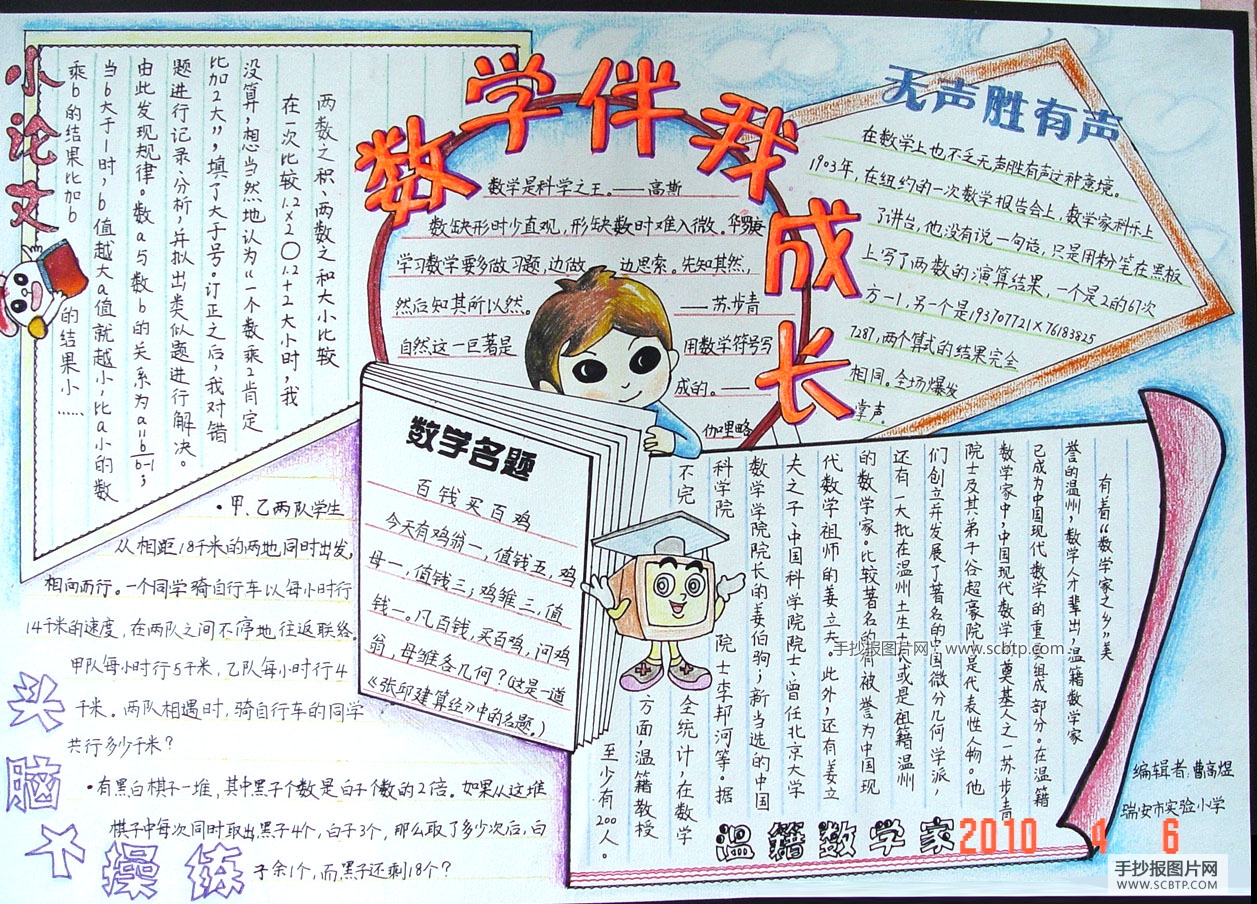 数学伴我成长
数学是科学之王。——高斯
数缺形时少直观，形缺数时难入微。华罗庚
学习数学要多做习题，边做 边思索。先知其然，
然后知其所以然。 ——苏步青
自然这一巨著是 用数学符号写
成的。——
伽里略
小论文
两数之积、两数之和大小比较
在一次比较1.2×2〇1.2+2大小时，我
没算，想当然地认为“一个数乘2肯定
比加2大”，填了大于号。订正之后，我对错
题进行记录、分析，并拟出类似题进行解决。
由此发现规律。数a与数b的关系为a=b/b-1；
当b大于1时，b值越大a值就越小，比a小的数
乘b的结果比加b 的结果小……
无声胜有声
在数学上也不乏无声胜有声这种意境。
1903年，在纽约的一次数学报告会上，数学家科乐上
了讲台，他没有说一句话，只是用粉笔在黑板
上写了两数的演算结果，一个是2的67次
方-1，另一个是193707721×76183825
7287，两个算式的结果完全
相同。全场爆发
掌声。
数学名题
百钱买百鸡
今天有鸡翁一，值钱五，鸡
母一，值钱三；鸡雏三，值
钱一。凡百钱，买百鸡，问鸡
翁、母雏各几何？（这是一道
《张邱建算经》中的名题。）
头脑体操练
·甲、乙两队学生
从相距18千米的两地同时出发，
相向而行。一个同学骑自行车以每小时行
14千米的速度，在两队之间不停地往返联络。
甲队每小时行5千米，乙队每小时行4
千米。两队相遇时，骑自行车的同学
共行多少千米？
·有黑白棋子一堆，其中黑子个数是白子个数的2倍。如果从这堆
棋子中每次同时取出黑子4个，白子3个，那么取了多少次后，白
子余1个，而黑子还剩18个？
温籍数学家
有着“数学家之乡”美
誉的温州，数学人才辈出，温籍数学家
已成为中国现代数学的重要组成部分。在温籍
数学家中，中国现代数学奠基人之一苏步青
院士及其弟子谷超豪院士是代表性人物。他
们创立并发展了著名的中国微分几何学派，
还有一大批在温州土生土长或是祖籍温州
的数学家。比较著名的有被誉为中国现
代数学祖师的姜立夫。此外，还有姜立
夫之子、中国科学院院士、曾任北京大学
数学学院院长的姜伯驹；新当选的中国
科学院 院士李邦河等。据
不完 全统计，在数学
方面，温籍教授
至少有200人。
编辑者：曹高煜
瑞安市实验小学
2010 4 6
手抄报图片网：www.scbtp.com
手抄报图片网
WWW.SCBTP.COM